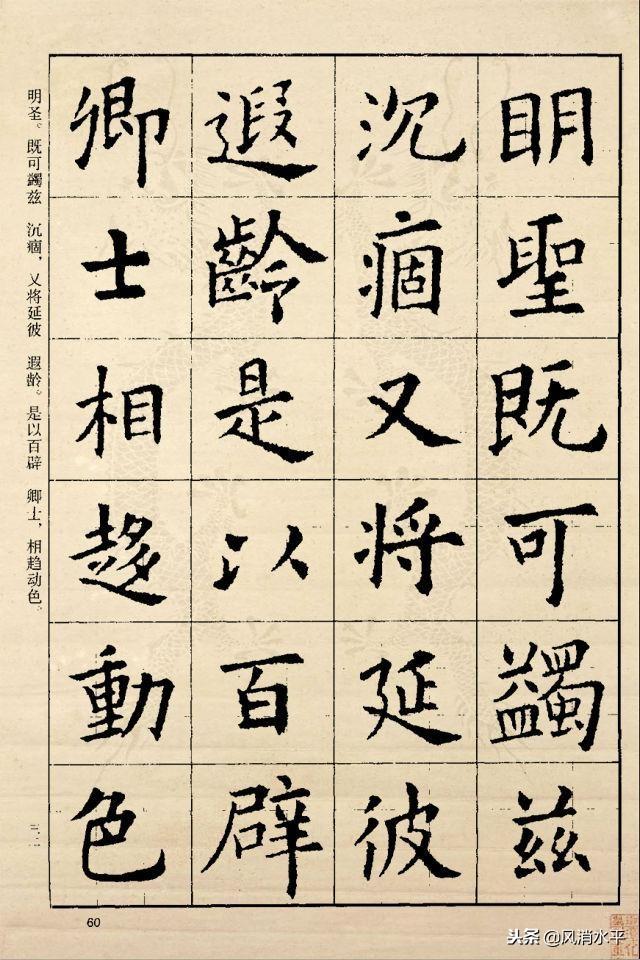 明聖既可蠲茲
沉痼又将延彼
遐齡是以百辟
卿士相趍動色
明圣。既可蠲兹 沉痼，又将延彼 遐龄。是以百辟 卿士，相趋动色。
60
头条 @风消水平